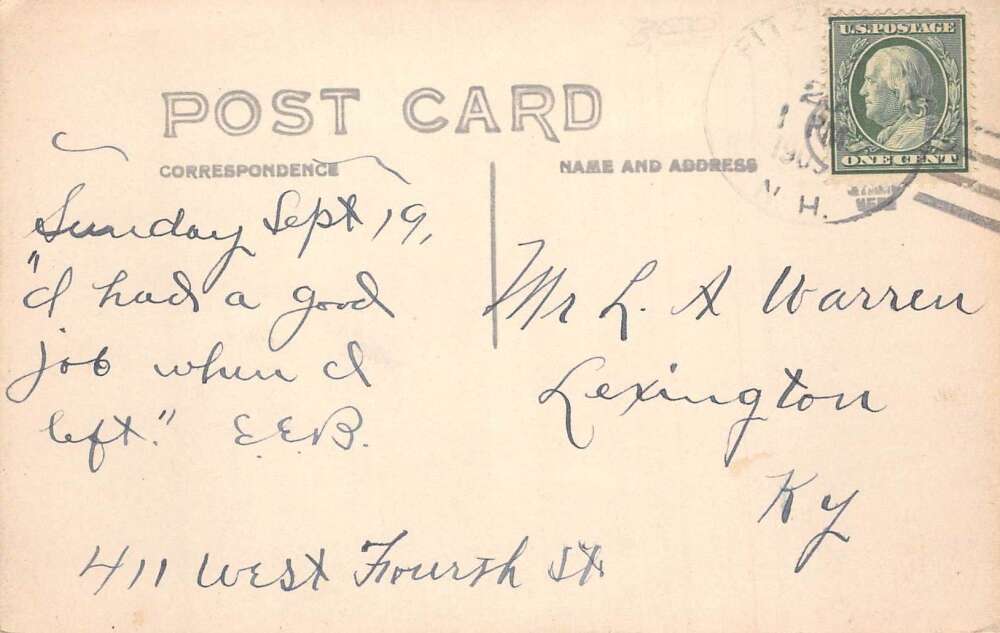 POST CARD
CORRESPONDENCE
NAME AND ADDRESS
U.S. POSTAGE
ONE CENT
FITZ
1909
N. H.
Sunday Sept 19,
"I had a good
job when I
left." E.E.B.
Mr L. A Warren
Lexington
Ky
411 West Fourth St